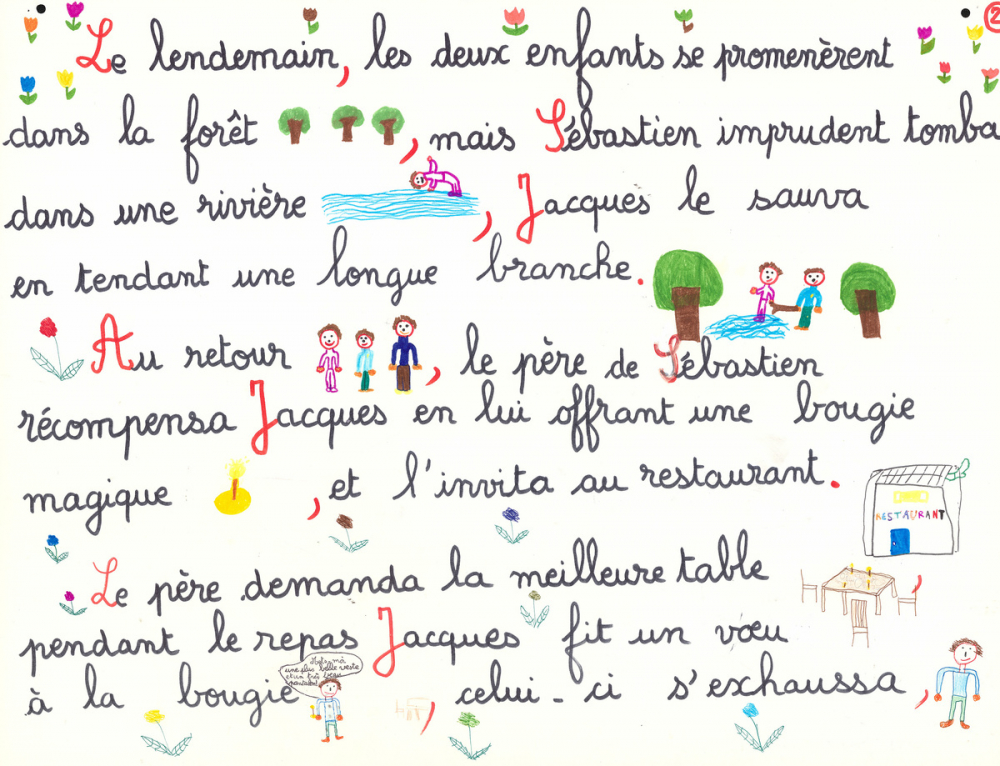 2
Le lendemain, les deux enfants se promenèrent
dans la forêt , mais Sébastien imprudent tomba
dans une rivière , Jacques le sauva
en tendant une longue branche.
Au retour , le père de Sébastien
récompensa Jacques en lui offrant une bougie
magique , et l'invita au restaurant.
RESTAURANT
Le père demanda la meilleure table ,
pendant le repas Jacques fit un vœu
une plus belle veste
à la bougie , celui-ci s'exhaussa ,